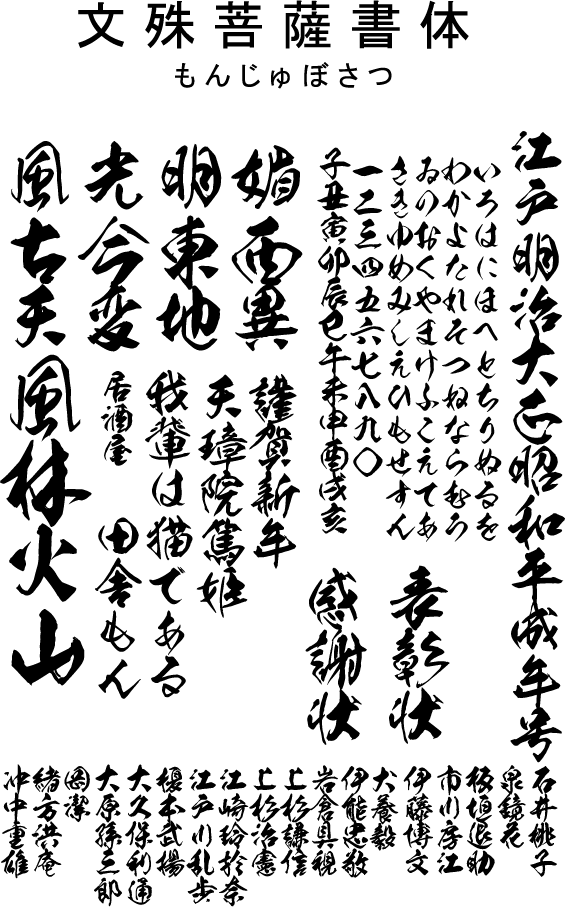 文殊菩薩書体
もんじゅぼさつ
江戸明治大正昭和平成年号
いろはにほへとちりぬるを
わかよたれそつねならむう
ゐのおくやまけふこえてあ
さきゆめみしゑひもせすん
一二三四五六七八九〇
子丑寅卯辰巳午未申酉戌亥
表彰状
感謝状
媚西異
明東地
光今変
風古天
謹賀新年
天璋院篤姫
我輩は猫である
居酒屋 田舎もん
風林火山
石井桃子
泉鏡花
板垣退助
市川房江
伊藤博文
犬養毅
伊能忠敬
岩倉具視
上杉謙信
上杉治憲
江崎玲於奈
江戸川乱歩
榎本武揚
大久保利通
大原孫三郎
岡潔
緒方洪庵
沖中重雄